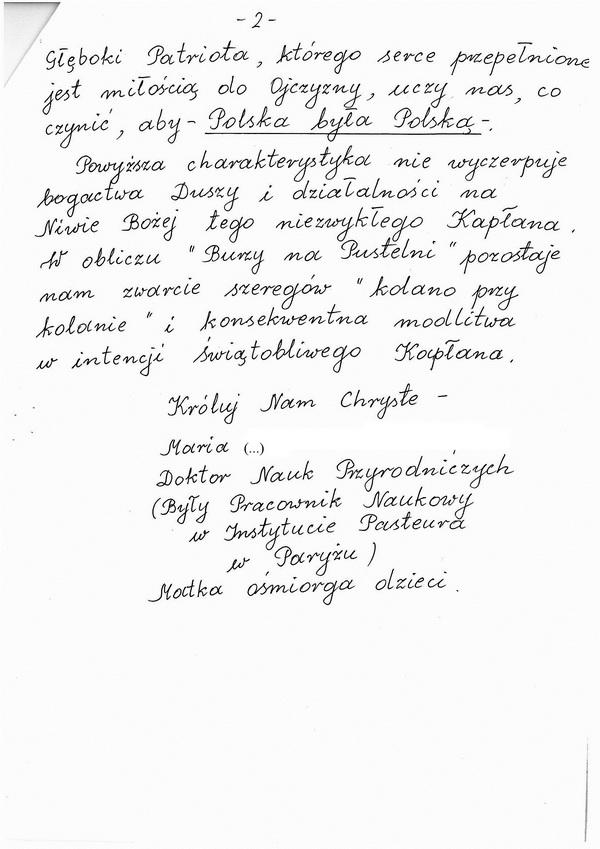 - 2 -
Głęboki Patriota, którego serce przepełnione
jest miłością do Ojczyzny, uczy nas, co
czynić, aby - Polska była Polską -.
Powyższa charakterystyka nie wyczerpuje
bogactwa Duszy i działalności na
Niwie Bożej tego niezwykłego Kapłana.
W obliczu "Burzy na Pustelni" pozostaje
nam zwarcie szeregów "kolano przy
kolanie" i konsekwentna modlitwa
w intencji świątobliwego Kapłana.
Króluj Nam Chryste -
Maria (...)
Doktor Nauk Przyrodniczych
(Były Pracownik Naukowy
w Instytucie Pasteura
w Paryżu)
Matka ośmiorga dzieci.